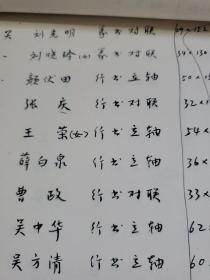 吴 刘克明 篆书对联 69×152
- 刘晓玲(女) 篆书对联 34×130
- 颜伏田 行书立轴 50×
张庆 行书对联 32×1
王荣(女) 行书立轴 54×
薛白泉 行书立轴 36×
曹政 行书对联 33×
吴中华 行书立轴 62
吴方清 行书立轴 60